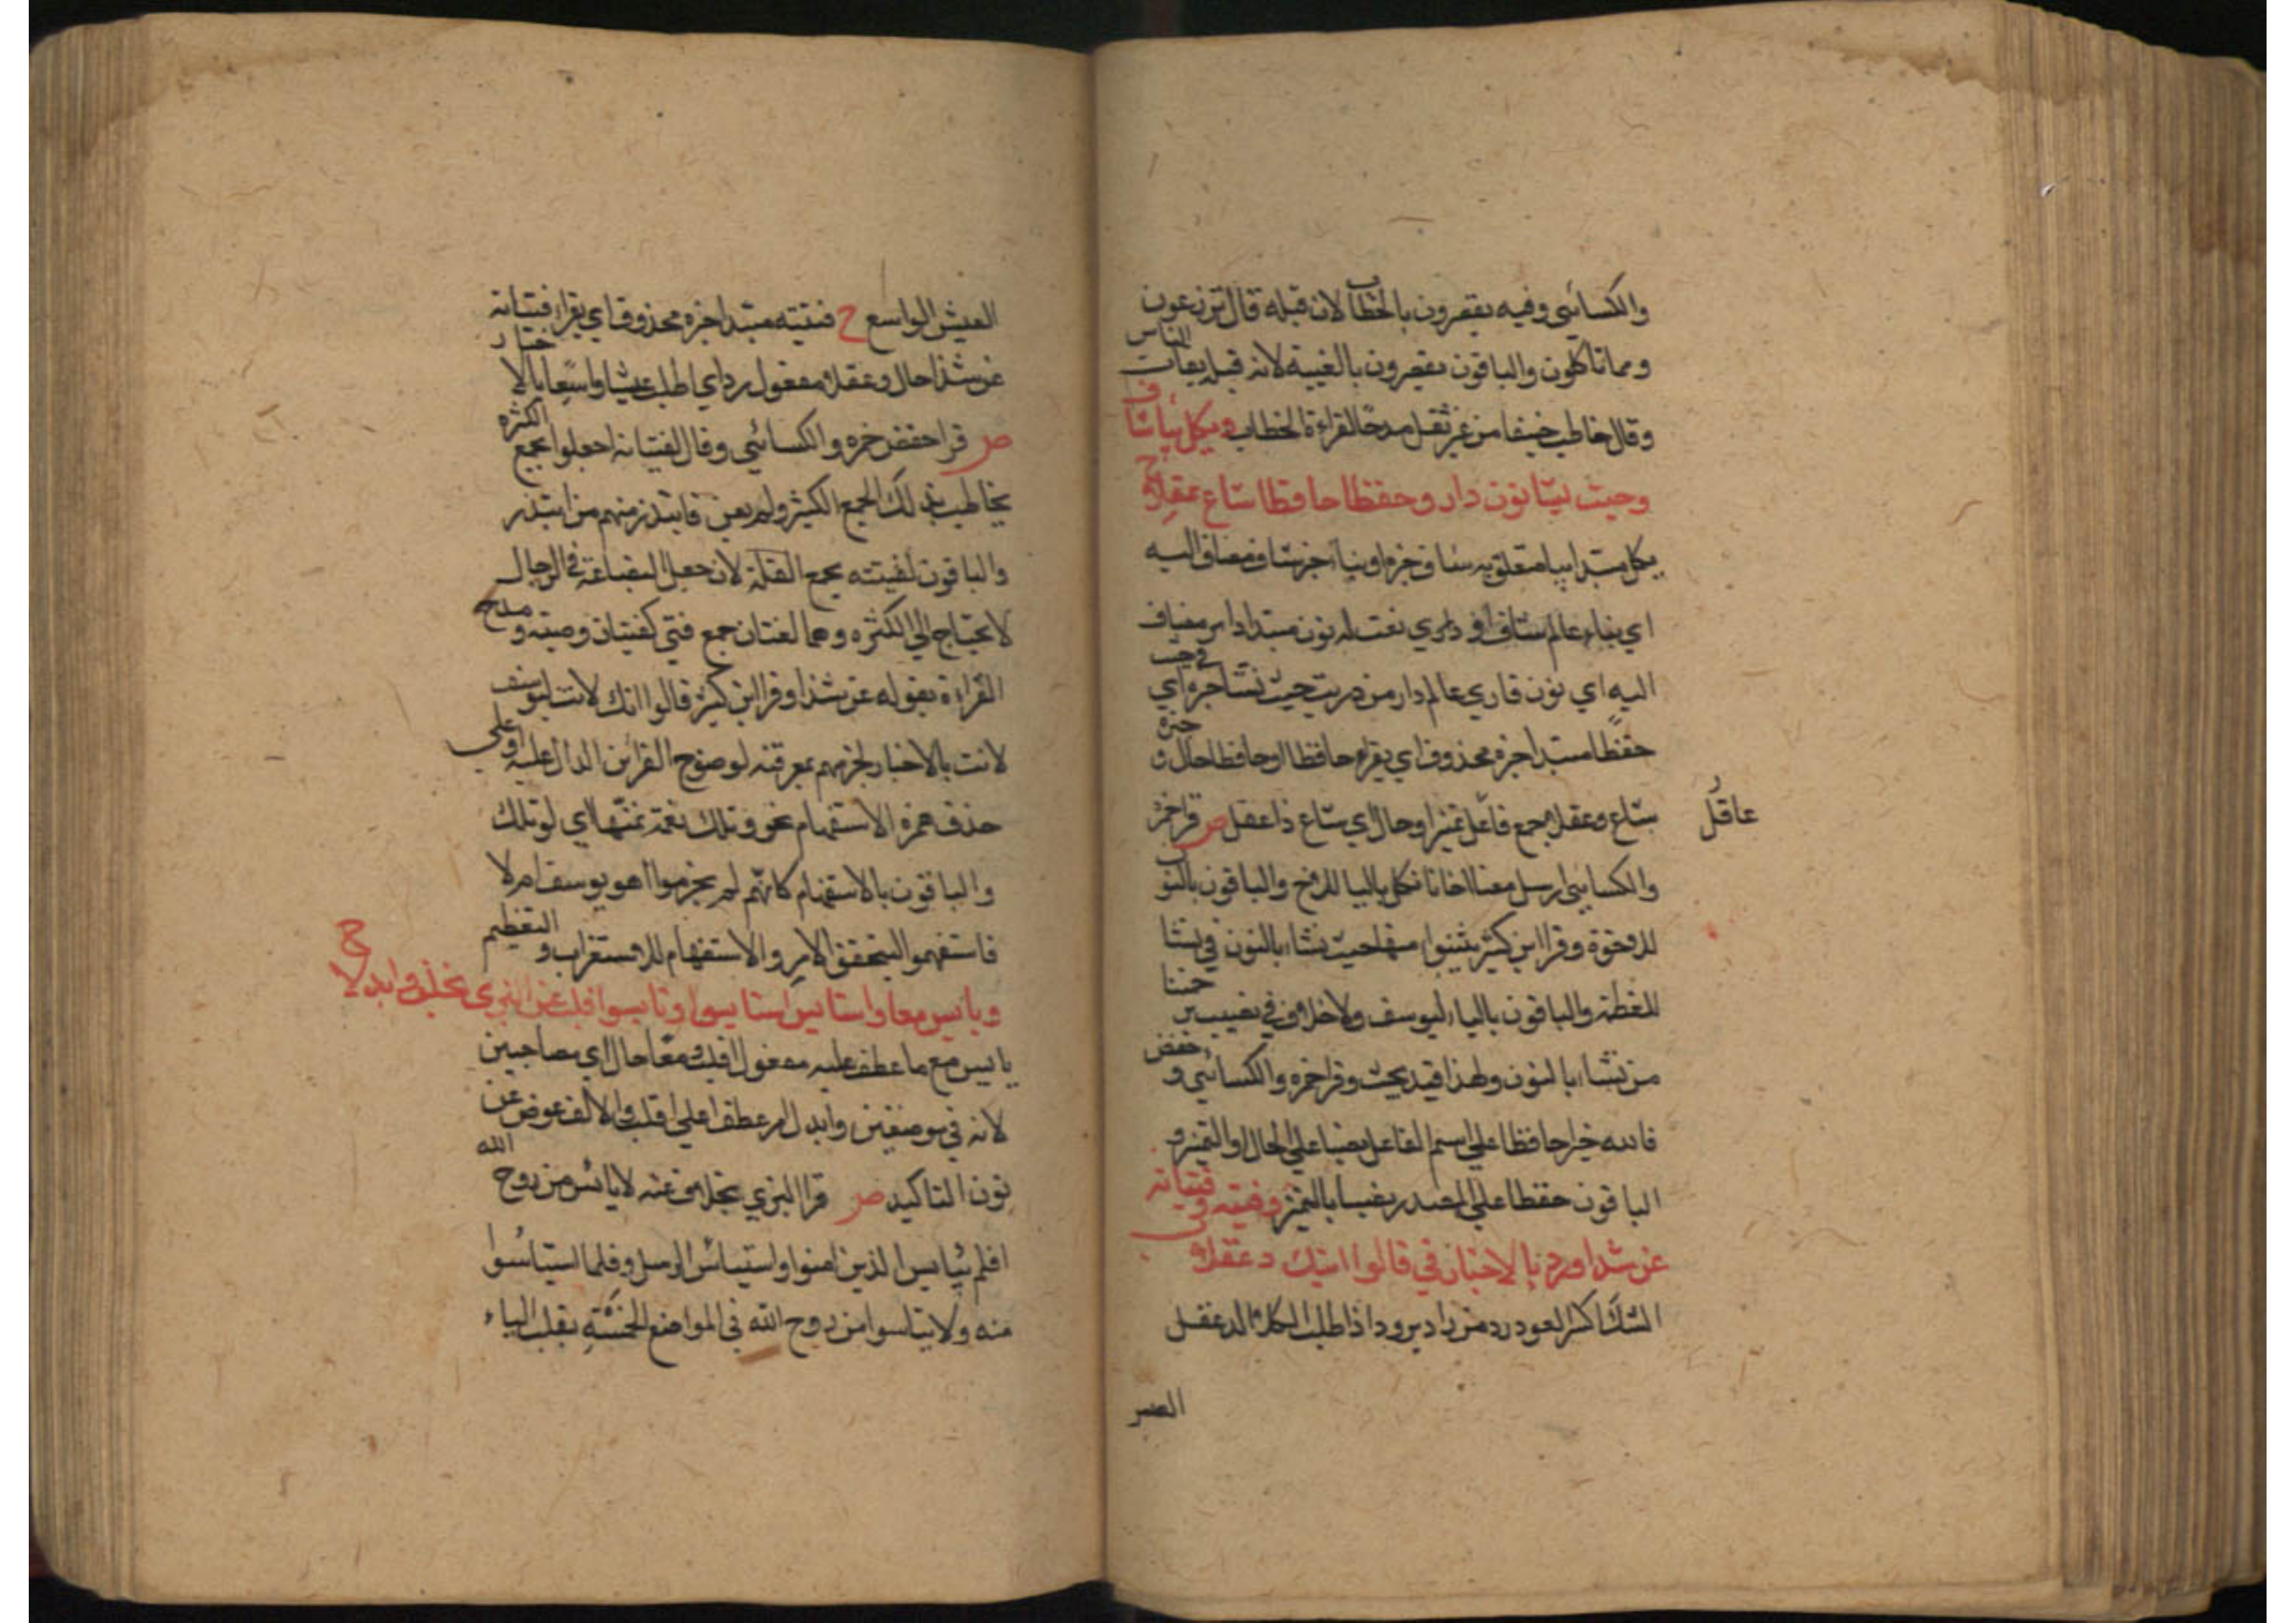 والكسائي وفيه يعصرون بالخطاب لان قبله قال تزرعون
ومما تاكلون والباقون يعصرون بالغيبة لانه قبل يغاث الناس
وقال خاطب خفيفا من غير ثقل مدحا لقراءة الخطاب ونكتل بيا شاف
وحيث نشا نون دار وحفظا حافظا شاع عقلا ح
نكتل مبتدا بيا متعلق به شاف خبره او بيا خبر شاف مضاف اليه
اي بياء عالم شاف او نعت له نون مبتدا دار مضاف
اليه اي نون قاري عالم دار من دريت حيث نشا خبره اي في حيث
حفظا مبتدا خبره محذوف اي يقراه حافظا او حافظا حال و خبره
شاع وعقلا جمع فاعل تميز او حال اي شاع ذا عقل ص قرا حمزة
عاقل
والكسايي ارسل معنا اخانا نكتل باليا للاخ والباقون بالنون
للاخوة وقرا ابن كثير يتبوا منها حيث نشاء بالنون في نشا
للعظمة والباقون بالياء ليوسف ولاخلاف في نصيب برحمتنا
من نشاء بالنون ولهذا قيد بحيث وقرا حمزه والكسائي و حفص
فالله خير حافظا علي اسم الفاعل نصبا علي الحال او التميز و
الباقون حفظا علي المصدر نصبا بالتميز وفتيته فتيانه
عن شذا ورد بالاخبار في قالوا ائنك دغفلا
الشذا كسر العود رد من راد يرود اذا طلب الكلاء الدغفل
العيش
العيش الواسع ح فتيته مبتدا خبره محذوف اي يقرا فتيانه
عن شذا حال دغفلا مفعول رد اي اطلب عيشا واسعا بالاختيار
ص قرا حفص حمزه والكسائي وقال لفتيانه اجعلوا بجمع الكثره
يخاطب بذلك الجمع الكثير وليبعن فابتدر منهم من ابتدر
والباقون لفتيته بجمع القلة لان جعل البضاعة في الرحال
لا يحتاج الي الكثره وهما لغتان جمع فتي كفتيان وصبية ومدح
القراءة بقوله عن شذا وقرا ابن كثير قالوا انك لانت يوسف
لانت بالاخبار لجزمهم بمعرفته لوضوح القراين الدال عليه او علي
حذف همزه الاستفهام نحو وتلك نعمة تمنها اي اوتلك
والباقون بالاستفهام كانهم لم يجزموا اهو يوسف ام لا
فاستفهموا ليتحقق الامر والاستفهام للاستغراب والتعظيم
وياس معا واستايس استايسوا وتايسوا اقلب عن البزي بخلف وابدلا ح
يايس مع ما عطف عليه مفعول اقلب ومعا حال اي مصاحبين
لانه في موضعين وابدل امر عطف علي اقلب والالف عوض عن
نون التاكيد ص قرا البزي بخلاف عنه لا يائس من روح الله
افلم يياس الذين امنوا واستيأس الرسل وفلما استيأسوا
منه ولا تيأسوا من روح الله في المواضع الخمسة بقلب الياء